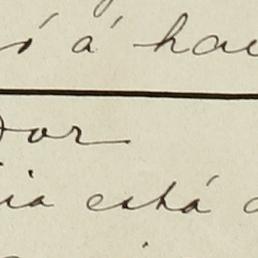 ó á hac
dor
ia está